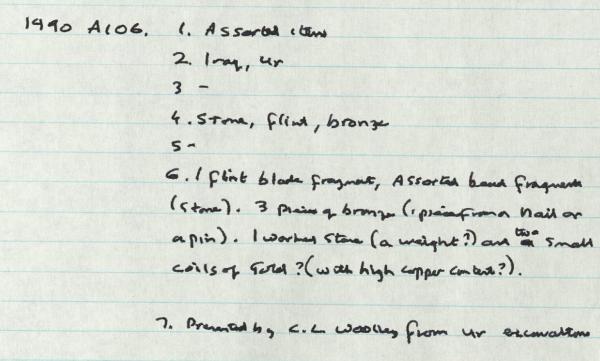 1990 A106. 1. Assorted items
2. Iraq, Ur
3 -
4. Stone, flint, bronze
5 -
6. 1 flint blade fragment, Assorted bead fragments
(stone). 3 pieces of bronze (1 piece from a nail or
a pin). 1 worked stone (a weight?) and two small
coils of gold? (with high copper content?).
7. Presented by C.L Woolley from Ur excavations